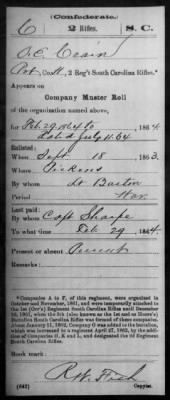 (Confederate.)
C 2 Rifles. S. C.
O. E. Crain
Pvt, Co. H, 2 Reg't South Carolina Rifles.*
Appears on
Company Muster Roll
of the organization named above,
for Feb. 29, 1864 to 186 .
dated July 11, 64
When Sept. 18 1863.
Where Pickens
By whom Lt Barton
Period War.
Last paid:
By whom Capt Sharpe
To what time Feb 29 1864.
Present or absent Present
Remarks:
*Companies A to F, of this regiment, were organized in
October and November, 1861, and were temporarily attached to
the 1st (Orr's) Regiment South Carolina Rifles until December
Battalion South Carolina Rifles was formed of these companies.
About January 11, 1862, Company G was added to the battalion,
which was increased to a regiment
companies
Regiment South Carolina Rifles.
Book mark:
R W Fish
(642) Copyist.